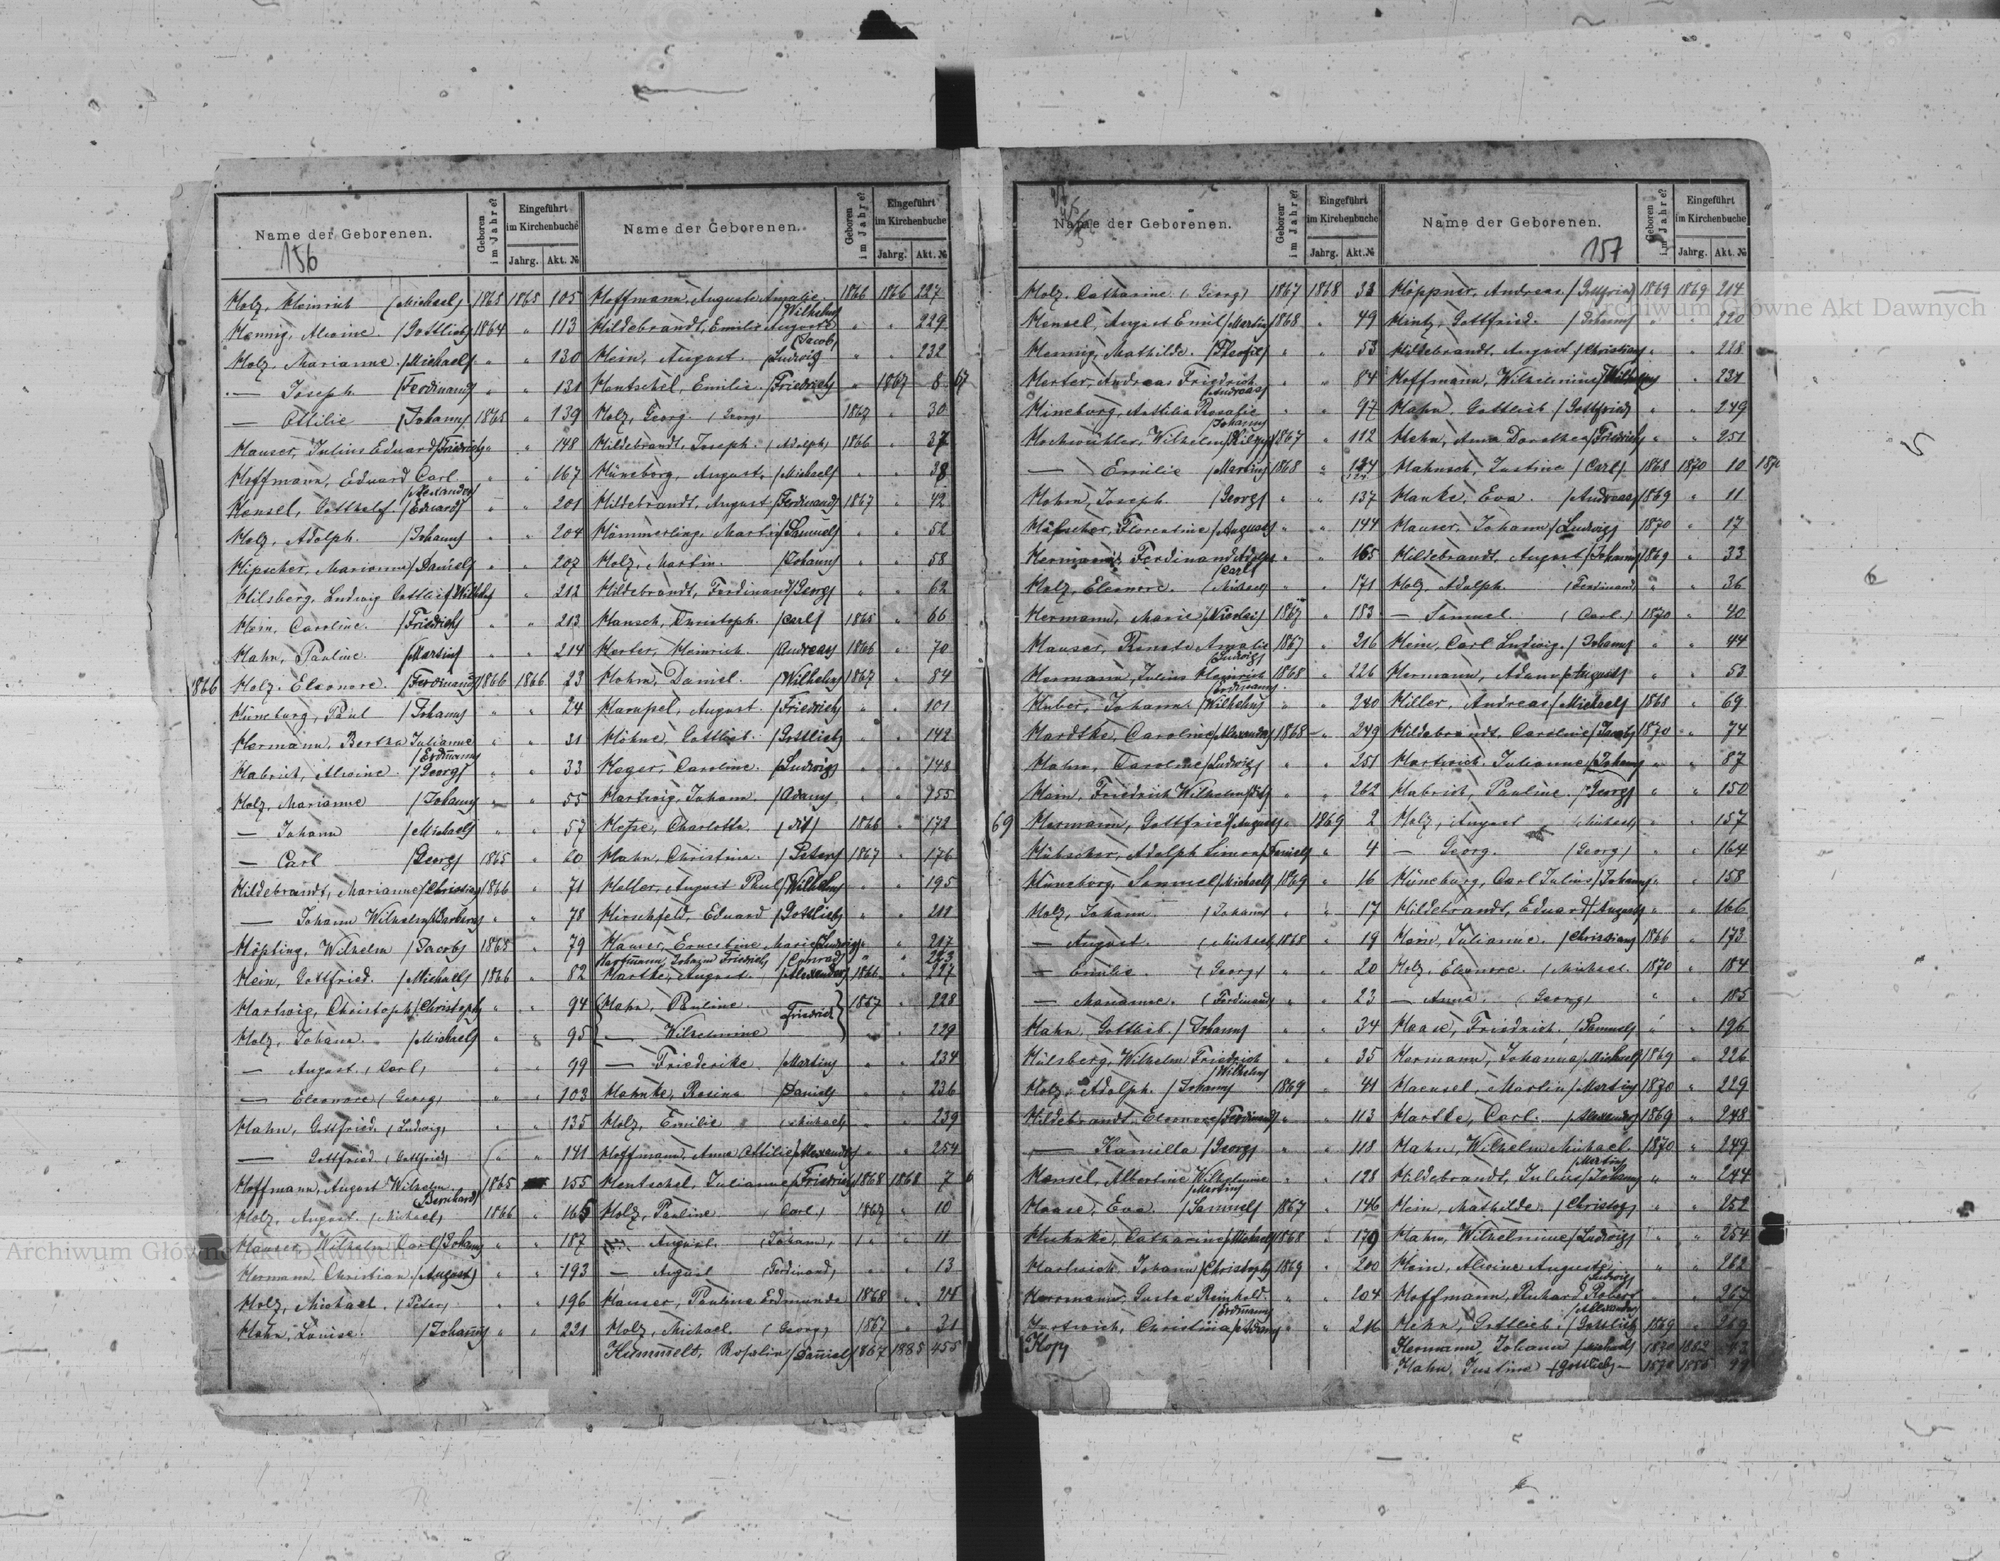 Name der Geborenen.
156
Geboren im Jahre?
Eingeführt im Kirchenbuche
Jahrg. Akt. №
Name der Geborenen.
Geboren im Jahre?
Eingeführt im Kirchenbuche
Jahrg. Akt. №
Holz, Heinrich (Michael) 1865 1865 105
Hennig, Alwine (Gottlieb) 1864 " 113
Holz, Marianne (Michael) " " 130
— Joseph (Ferdinand) " " 131
— Ottilie (Johann) 1865 " 139
Hauser, Julius Eduard (Friedrich) " " 148
Hoffmann, Eduard Carl " " 167
(Alexander)
Hensel, Gotthelf (Eduard) " " 201
Holz, Adolph (Johann) " " 204
Hipscher, Marianna (Daniel) " " 207
Hilsberg, Ludwig Gottlieb (Wilhelm) " " 212
Hein, Caroline (Friedrich) " " 213
Hahn, Pauline (Martin) " " 214
1866 Holz, Eleonore (Ferdinand) 1866 1866 23
Hüneburg, Paul (Johann) " " 24
Hermann, Bertha Julianne " " 31
(Erdmann)
Habrich, Alwine (Georg) " " 33
Holz, Marianne (Johann) " " 55
— Johann (Michael) " " 57
— Carl (Georg) 1865 " 60
Hildebrandt, Marianne (Christian) 1866 " 71
— Johann Wilhelm (Barbara) " " 78
Höpting, Wilhelm (Jacob) 1865 " 79
Hein, Gottfried (Michael) 1866 " 82
Hartwig, Christoph (Christoph) " " 94
Holz, Johann (Michael) " " 95
— August (Carl) " " 99
— Eleonore (Georg) " " 103
Hahn, Gottfried (Ludwig) " " 135
— Gottfried (Gottfried) " " 141
Hoffmann, August Wilhelm 1865 " 155
(Bernhard)
Holz, August (Michael) 1866 " 165
Hauser, Wilhelm Carl (Johann) " " 187
Hermann, Christian (August) " " 193
Holz, Michael (Peter) " " 196
Hahn, Louise (Johann) " " 221
Hoffmann, Auguste Amalie 1866 1866 227
(Wilhelm)
Hildebrandt, Emilie Auguste " " 229
(Jacob)
Hein, August (Ludwig) " " 232
Hentschel, Emilie (Friedrich) " 1867 8 67
Holz, Georg (Georg) 1867 " 30
Hildebrandt, Joseph (Adolph) 1866 " 37
Hüneborg, August (Michael) " " 38
Hildebrandt, August (Ferdinand) 1867 " 42
Hämmerling, Martin (Samuel) " " 52
Holz, Martin (Johann) " " 58
Hildebrandt, Ferdinand (Georg) " " 62
Hansch, Christoph (Carl) 1865 " 66
Herter, Heinrich (Andreas) 1866 " 70
Hohm, Daniel (Wilhelm) 1867 " 84
Hampel, August (Friedrich) " " 101
Höhne, Gottlieb (Gottlieb) " " 142
Heger, Caroline (Ludwig) " " 148
Hartwig, Johann (Adam) " " 155
Charlotte 1866 " 172
Hahn, Christine (Peter) 1867 " 176
Heller, August Paul (Wilhelm) " " 195
Hirschfeld, Eduard (Gottlieb) " "
Hauser, Ernestine Marie (Ludwig) " " 217
Hartmann, Johann Friedrich (Conrad) " " 223
Hartke, August (Alexander) 1866 " 227
Hahn, Pauline 1867 " 228
(Friedrich)
— Wilhelmine " " 229
— Friederike (Martin) " " 234
Hahnke, Rosina (Daniel) " " 236
Holz, Emilie (Michael) " " 239
Hoffmann, Anna Ottilie (Alexander) " " 254
Hentschel, Julianna (Friedrich) 1868 1868 7
Holz, Pauline (Carl) 1867 " 10
— August (Johann) " " 11
— August (Ferdinand) " " 13
Hauser, Pauline Edmunda 1868 "
Holz, Michael (Georg) 1867 " 31
Hummelt, Rosalin (Daniel) 1867 1885 455
Name der Geborenen.
Geboren im Jahre?
Eingeführt im Kirchenbuche
Jahrg. Akt. №
Name der Geborenen.
157
Geboren im Jahre?
Eingeführt im Kirchenbuche
Jahrg. Akt. №
Holz, Catharine (Georg) 1867 1868 33
Hensel, August Emil (Martin) 1868 " 49
Hennig, Mathilde (Theofil) " " 53
Herter, Andreas Friedrich " " 84
(Andreas)
Hineborg, Rosalie " " 97
(Johann)
Hochwichter, Wilhelm 1867 " 112
— Emilie (Martin) 1868 " 124
Hohm, Joseph (Georg) " " 137
Florentine (August) " " 144
Hermann, Ferdinand Adolph " " 165
(Carl)
Holz, Eleonore (Michael) " " 171
Hermann, Marie (Nicolai) 1867 " 183
Hauser, Renate Amalie 1867 " 216
(Ludwig)
Hermann, Julius Heinrich 1868 " 226
(Erdmann)
Huber, Johann (Wilhelm) " " 240
Hardtke, Caroline (Alexander) 1868 " 249
Hahn, Caroline (Ludwig) " " 251
Hein, Friedrich Wilhelm " " 262
69 Hermann, Gottfried (August) " 1869 2
Hübscher, Adolph Simon (Daniel) " " 4
Hüneborg, Samuel (Michael) 1869 " 16
Holz, Johann (Johann) " " 17
— August (Michael) 1868 " 19
— Emilie (Georg) " " 20
— Marianne (Ferdinand) " " 23
Hahn, Gottlieb (Johann) " " 34
Hülsberg, Wilhelm Friedrich " " 35
(Wilhelm)
Holz, Adolph (Johann) 1869 " 41
Hildebrandt, Eleonore (Ferdinand) " " 113
— Kamilla (Georg) " " 118
Hensel, Albertine Wilhelmine " " 128
(Martin)
Haase, Eva (Samuel) 1867 " 146
Huhnke, Catharina (Michael) 1868 " 179
Hartwich, Johann (Christoph) 1869 " 200
Herrmann, Gustav Reinhold " " 204
(Erdmann)
Hartwich, Christina " " 216
Höppner, Andreas (Gottfried) 1869 1869 214
Hintz, Gottfried (Johann) " " 220
Hildebrandt, August (Christian) " " 228
Hoffmann, Wilhelmine (Wilhelm) " " 231
Hahn, Gottlieb (Gottfried) " " 249
Hehn, Anna Dorothea (Friedrich) " " 251
Hahnsch, Justina (Carl) 1868 1870 10
Hanke, Eva (Andreas) 1869 " 11
Hauser, Johann (Ludwig) 1870 " 17
Hildebrandt, August (Johann) 1869 " 33
Holz, Adolph (Ferdinand) " " 36
— Samuel (Carl) 1870 " 40
Hein, Carl Ludwig (Johann) " " 44
Hermann, Adam (August) " " 53
Hiller, Andreas (Michael) 1868 " 69
Hildebrandt, Caroline (Jacob) 1870 " 74
Hartwich, Julianne (Johann) " " 87
Habrich, Pauline (Georg) " " 150
Holz, August (Michael) " " 157
— Georg (Georg) " " 164
Hüneburg, Carl Julius (Johann) " " 158
Hildebrandt, Eduard (August) " " 166
Hein, Julianne (Christian) 1866 " 173
Holz, Eleonore (Michael) 1870 " 184
— Anna (Georg) " " 185
Haase, Friedrich (Samuel) " " 196
Hermann, Johanna (Michael) 1869 " 226
Haensel, Martin (Martin) 1870 " 229
Hartke, Carl (Alexander) 1869 " 248
Hahn, Wilhelm Michael 1870 " 249
(Martin)
Hildebrandt, Julius (Johann) " " 244
Hein, Mathilde (Christoph) " " 252
Hahn, Wilhelmine (Ludwig) " " 254
Hein, Alwine Auguste " " 262
(Ludwig)
Hoffmann, Richard Robert " " 267
(Alexander)
Hehn, Gottlieb (Gottlieb) 1869 " 269
Hermann, Johann (Michael) 1870 1882
Hahn, Justine (Gottlieb)
Archiwum Główne Akt Dawnych
Archiwum Główne